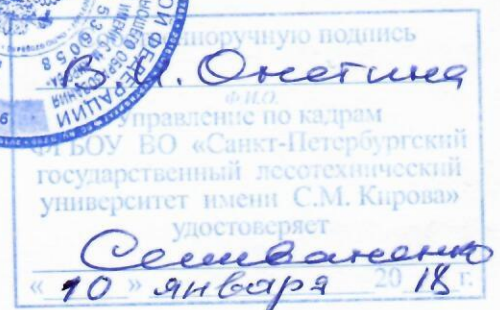 норучную подпись
В. Онегина
Ф.И.О.
Управление по кадрам
ФГБОУ ВО «Санкт-Петербургский
государственный лесотехнический
университет имени С.М. Кирова»
удостоверяет
Селиваненко
«10» января 2018 г.
536058
ФЕДЕРАЦИИ